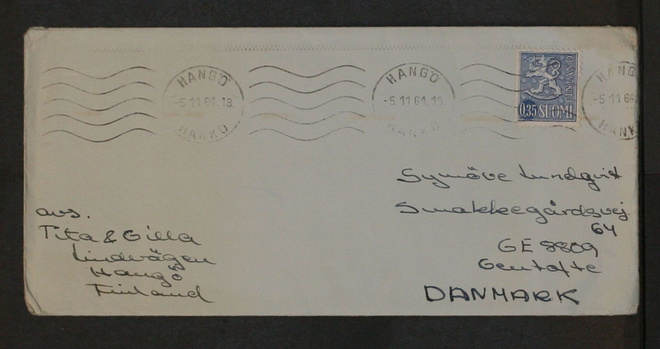 HANGÖ
-5.11 64.18
HANKO
HANGÖ
-5.11 64.18
HANKO
SUOMI
FINLAND
0,35 SUOMI
HANGÖ
-5.11 64
HANKO
Symöve Lundqvist
Smakkegårdsvej
64
GE 8809
Gentofte
DANMARK
avs.
Tita & Gilla
Lindvägen
Hangö
Finland